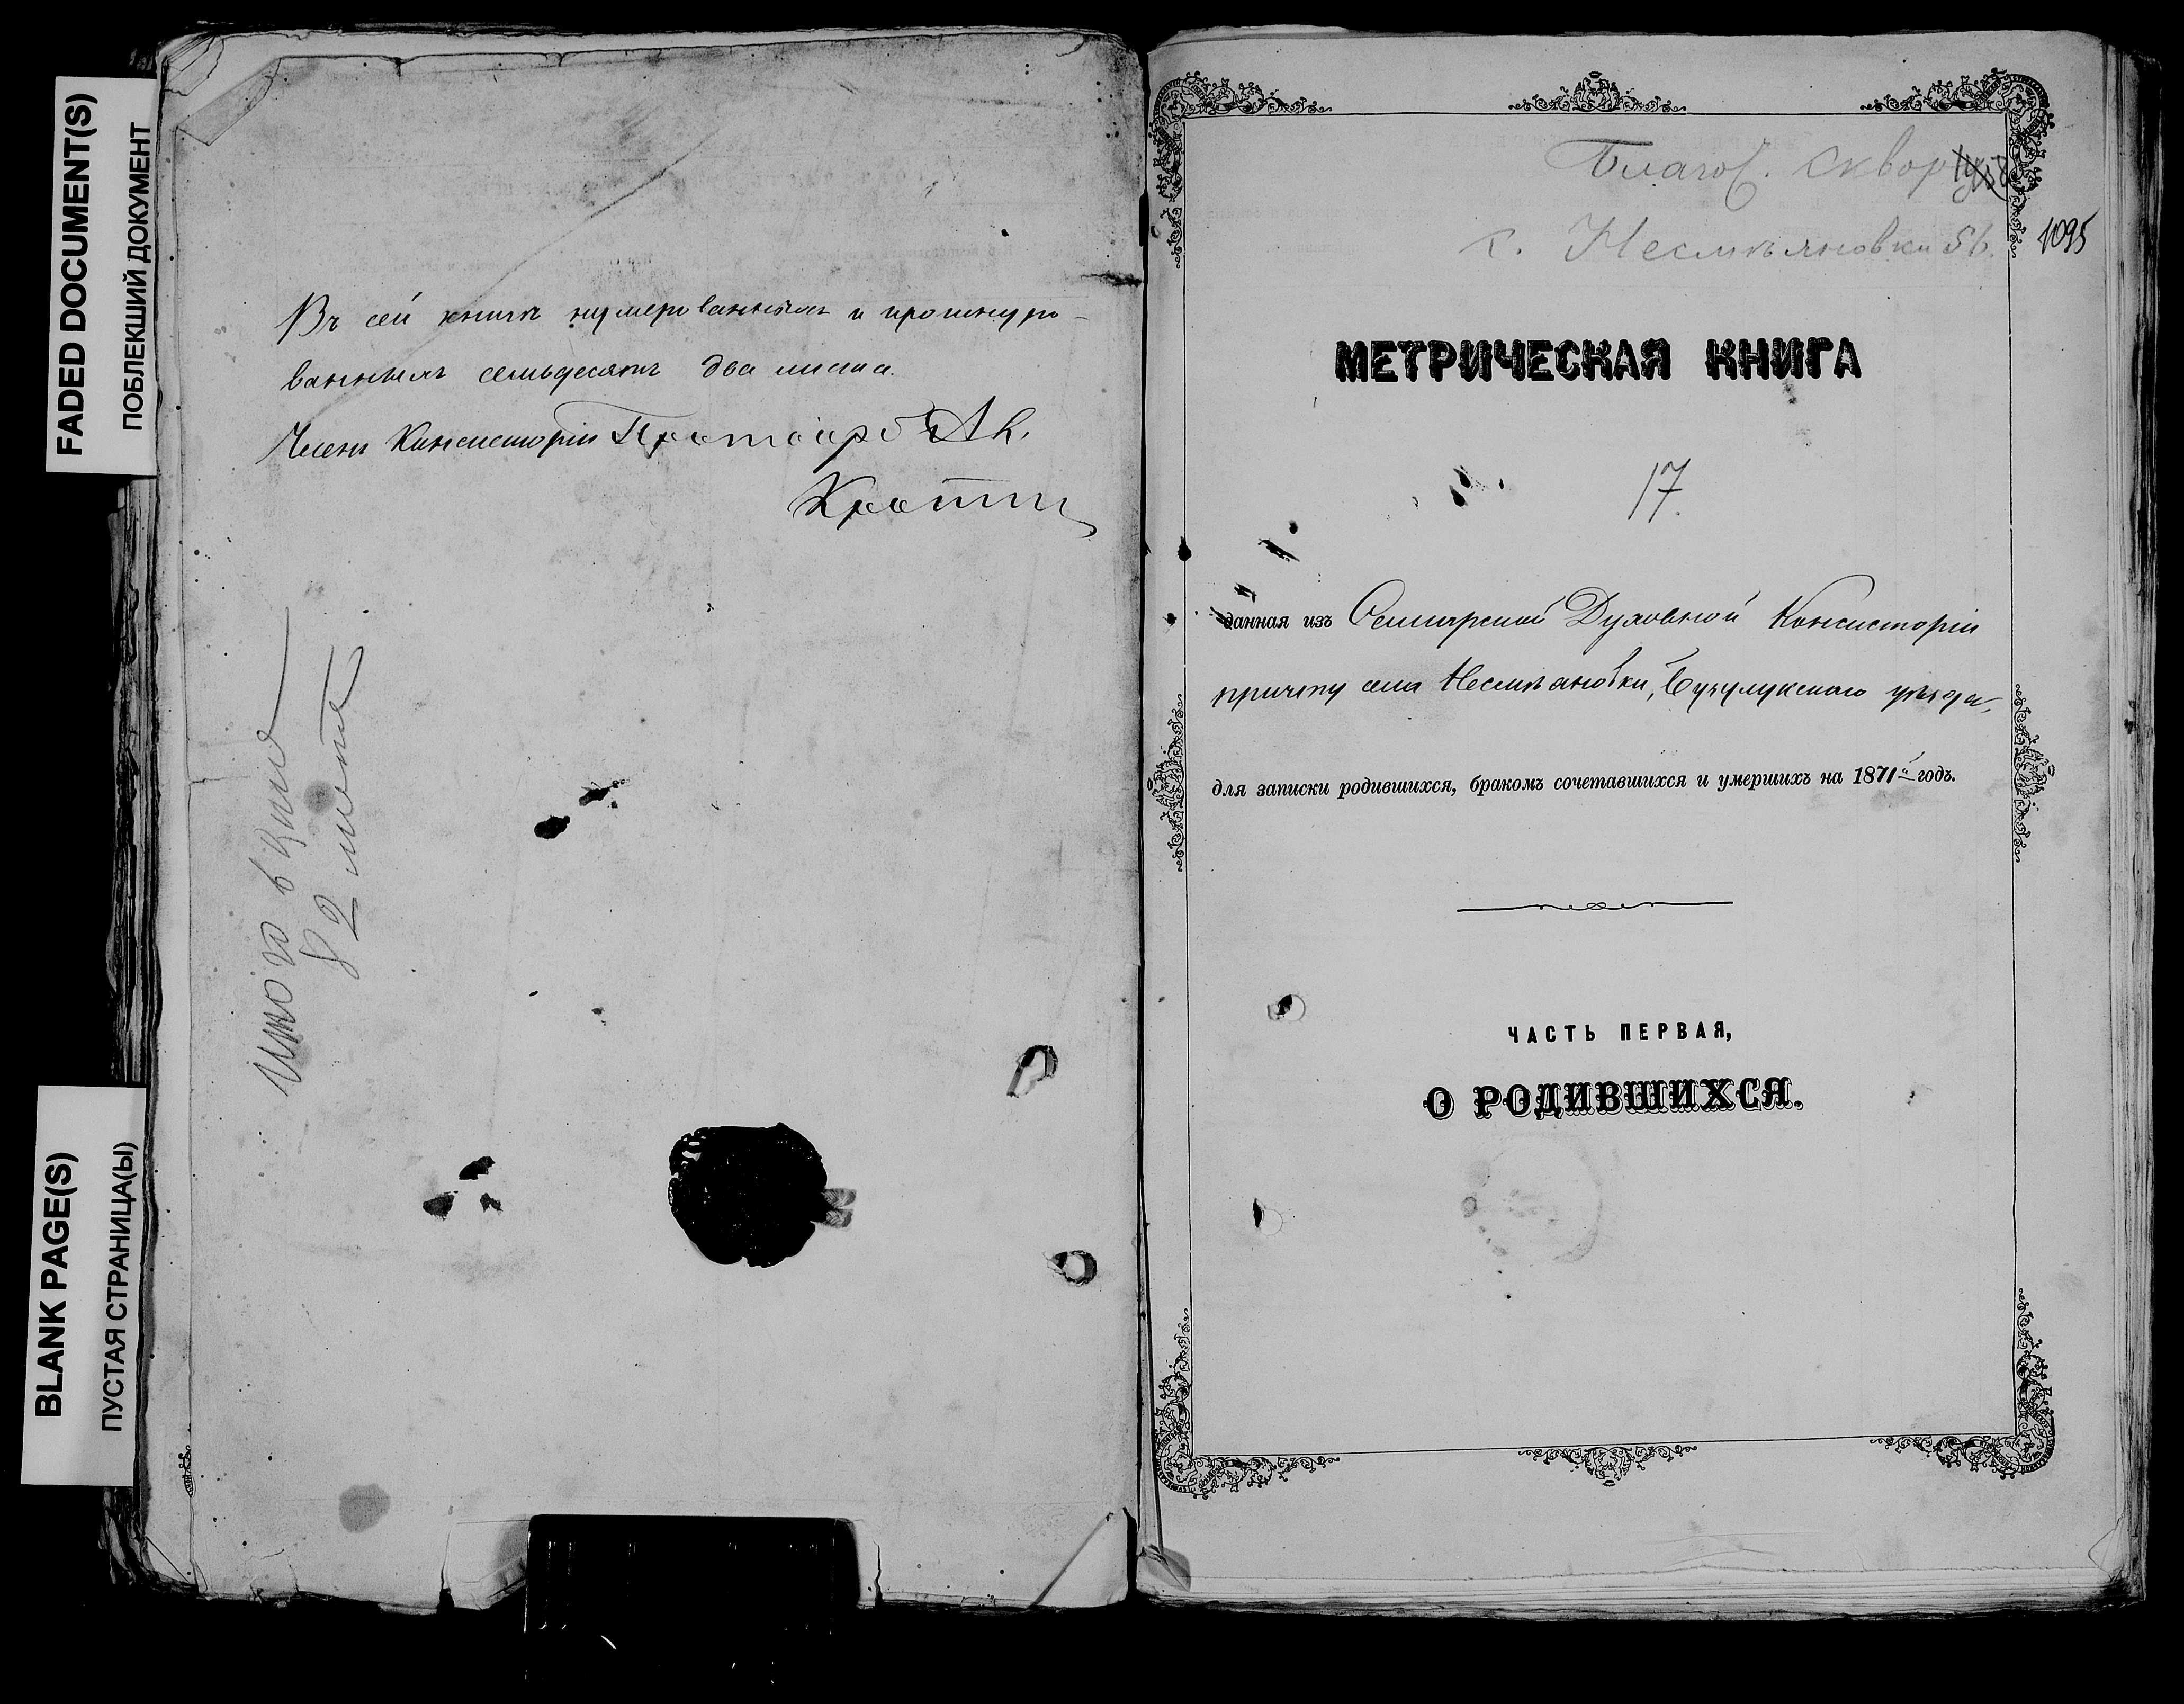 FADED DOCUMENT(S)
ПОБЛЕКШИЙ ДОКУМЕНТ
BLANK PAGE(S)
ПУСТАЯ СТРАНИЦА(Ы)
Въ сей книгѣ нумерованныхъ и прошнуро-
ванныхъ семьдесятъ два листа.
Членъ Консисторіи
82 листа
Благоч. Сквор
с. Несмѣяновки 56.
1095
МЕТРИЧЕСКАЯ КНИГА
17.
данная изъ Самарской Духовной Консисторіи
причту села Несмѣяновки, Бузулукскаго уѣзда,
для записки родившихся, бракомъ сочетавшихся и умершихъ на 1871й годъ.
ЧАСТЬ ПЕРВАЯ,
О РОДИВШИХСЯ.